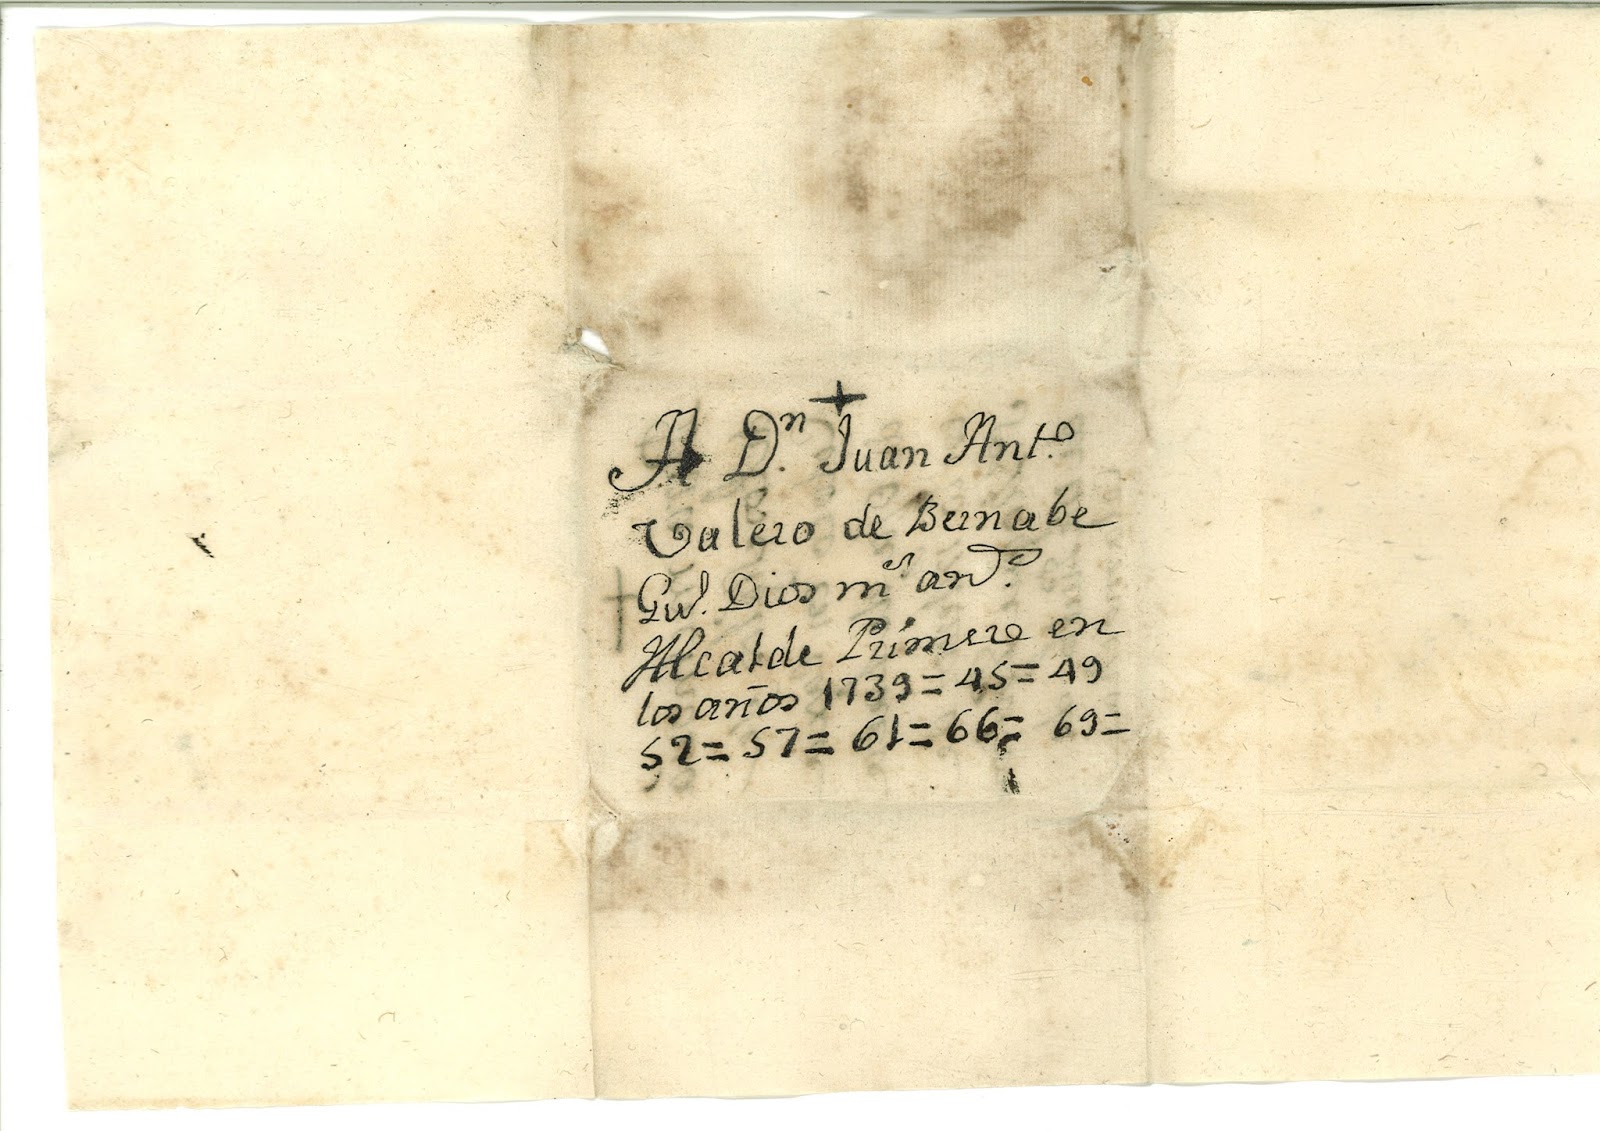 A Dn. Juan Anto.
Valero de Bernabe
Gue. Dios ms ans.
Alcalde Primero en
los años 1739=45=49
52=57=61=66= 69=